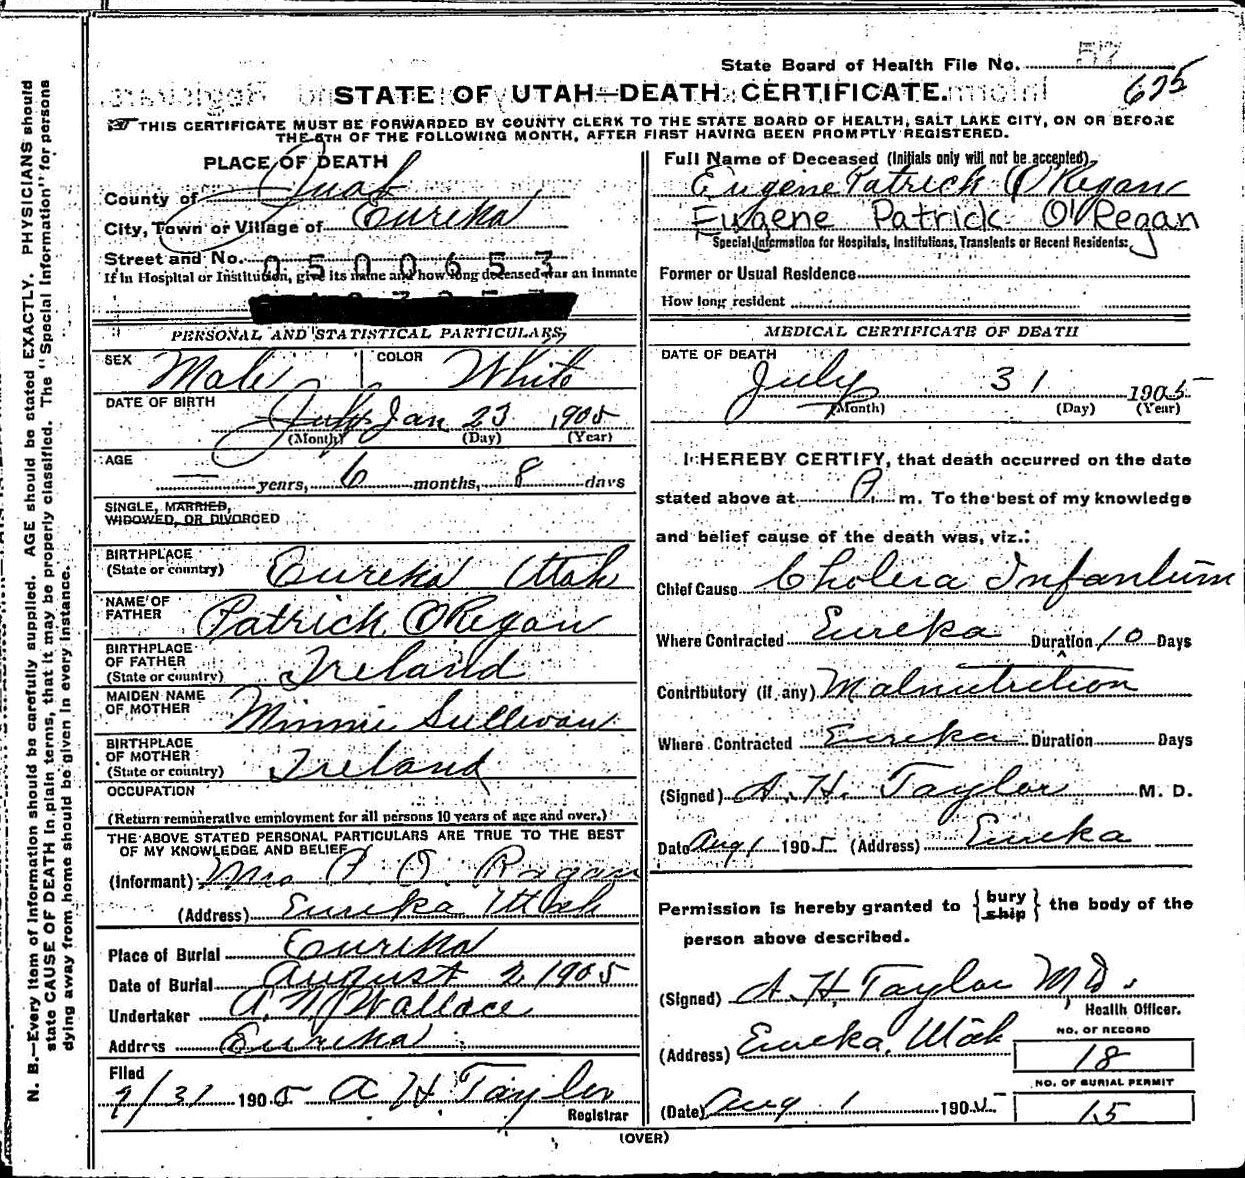 State Board of Health File No.
675
STATE OF UTAH—DEATH CERTIFICATE.
THIS CERTIFICATE MUST BE FORWARDED BY COUNTY CLERK TO THE STATE BOARD OF HEALTH, SALT LAKE CITY, ON OR BEFORE
THE 5TH OF THE FOLLOWING MONTH, AFTER FIRST HAVING BEEN PROMPTLY REGISTERED.
PLACE OF DEATH
County of Juab
City, Town or Village of Eureka
Street and No.
0500653
If in Hospital or Institution, give its name and how long deceased was an inmate
Full Name of Deceased (Initials only will not be accepted)
Eugene Patrick O'Regan
Eugene Patrick O'Regan
Special Information for Hospitals, Institutions, Transients or Recent Residents:
Former or Usual Residence
How long resident
PERSONAL AND STATISTICAL PARTICULARS
SEX Male COLOR White
DATE OF BIRTH
July Jan 23 1905
(Month) (Day) (Year)
AGE
— years, 6 months, 8 days
SINGLE, MARRIED,
WIDOWED, OR DIVORCED
BIRTHPLACE
(State or country) Eureka Utah
NAME OF
FATHER Patrick O'Regan
BIRTHPLACE
OF FATHER
(State or country) Ireland
MAIDEN NAME
OF MOTHER Minnie Sullivan
BIRTHPLACE
OF MOTHER
(State or country) Ireland
OCCUPATION
(Return remunerative employment for all persons 10 years of age and over.)
THE ABOVE STATED PERSONAL PARTICULARS ARE TRUE TO THE BEST
OF MY KNOWLEDGE AND BELIEF
(Informant) Mrs P. O. Ragan
(Address) Eureka Utah
Place of Burial Eureka
Date of Burial August 2 1905
Undertaker A. N. Wallace
Address Eureka
Filed
7/31 1905 A H Taylor
Registrar
MEDICAL CERTIFICATE OF DEATH
DATE OF DEATH
July 31 1905
(Month) (Day) (Year)
I HEREBY CERTIFY, that death occurred on the date
stated above at P. m. To the best of my knowledge
and belief cause of the death was, viz.:
Chief Cause Cholera Infantum
Where Contracted Eureka Duration 10 Days
Contributory (if any) Malnutrition
Where Contracted Eureka Duration Days
(Signed) A. H. Taylor M. D.
Date Aug 1 1905 (Address) Eureka
Permission is hereby granted to {bury
ship} the body of the
person above described.
(Signed) A. H. Taylor M D.
Health Officer.
(Address) Eureka, Utah
NO. OF RECORD
18
NO. OF BURIAL PERMIT
15
(Date) Aug 1 1905
(OVER)
N. B.—Every item of information should be carefully supplied. AGE should be stated EXACTLY. PHYSICIANS should
state CAUSE OF DEATH in plain terms, that it may be properly classified. The "Special Information" for persons
dying away from home should be given in every instance.